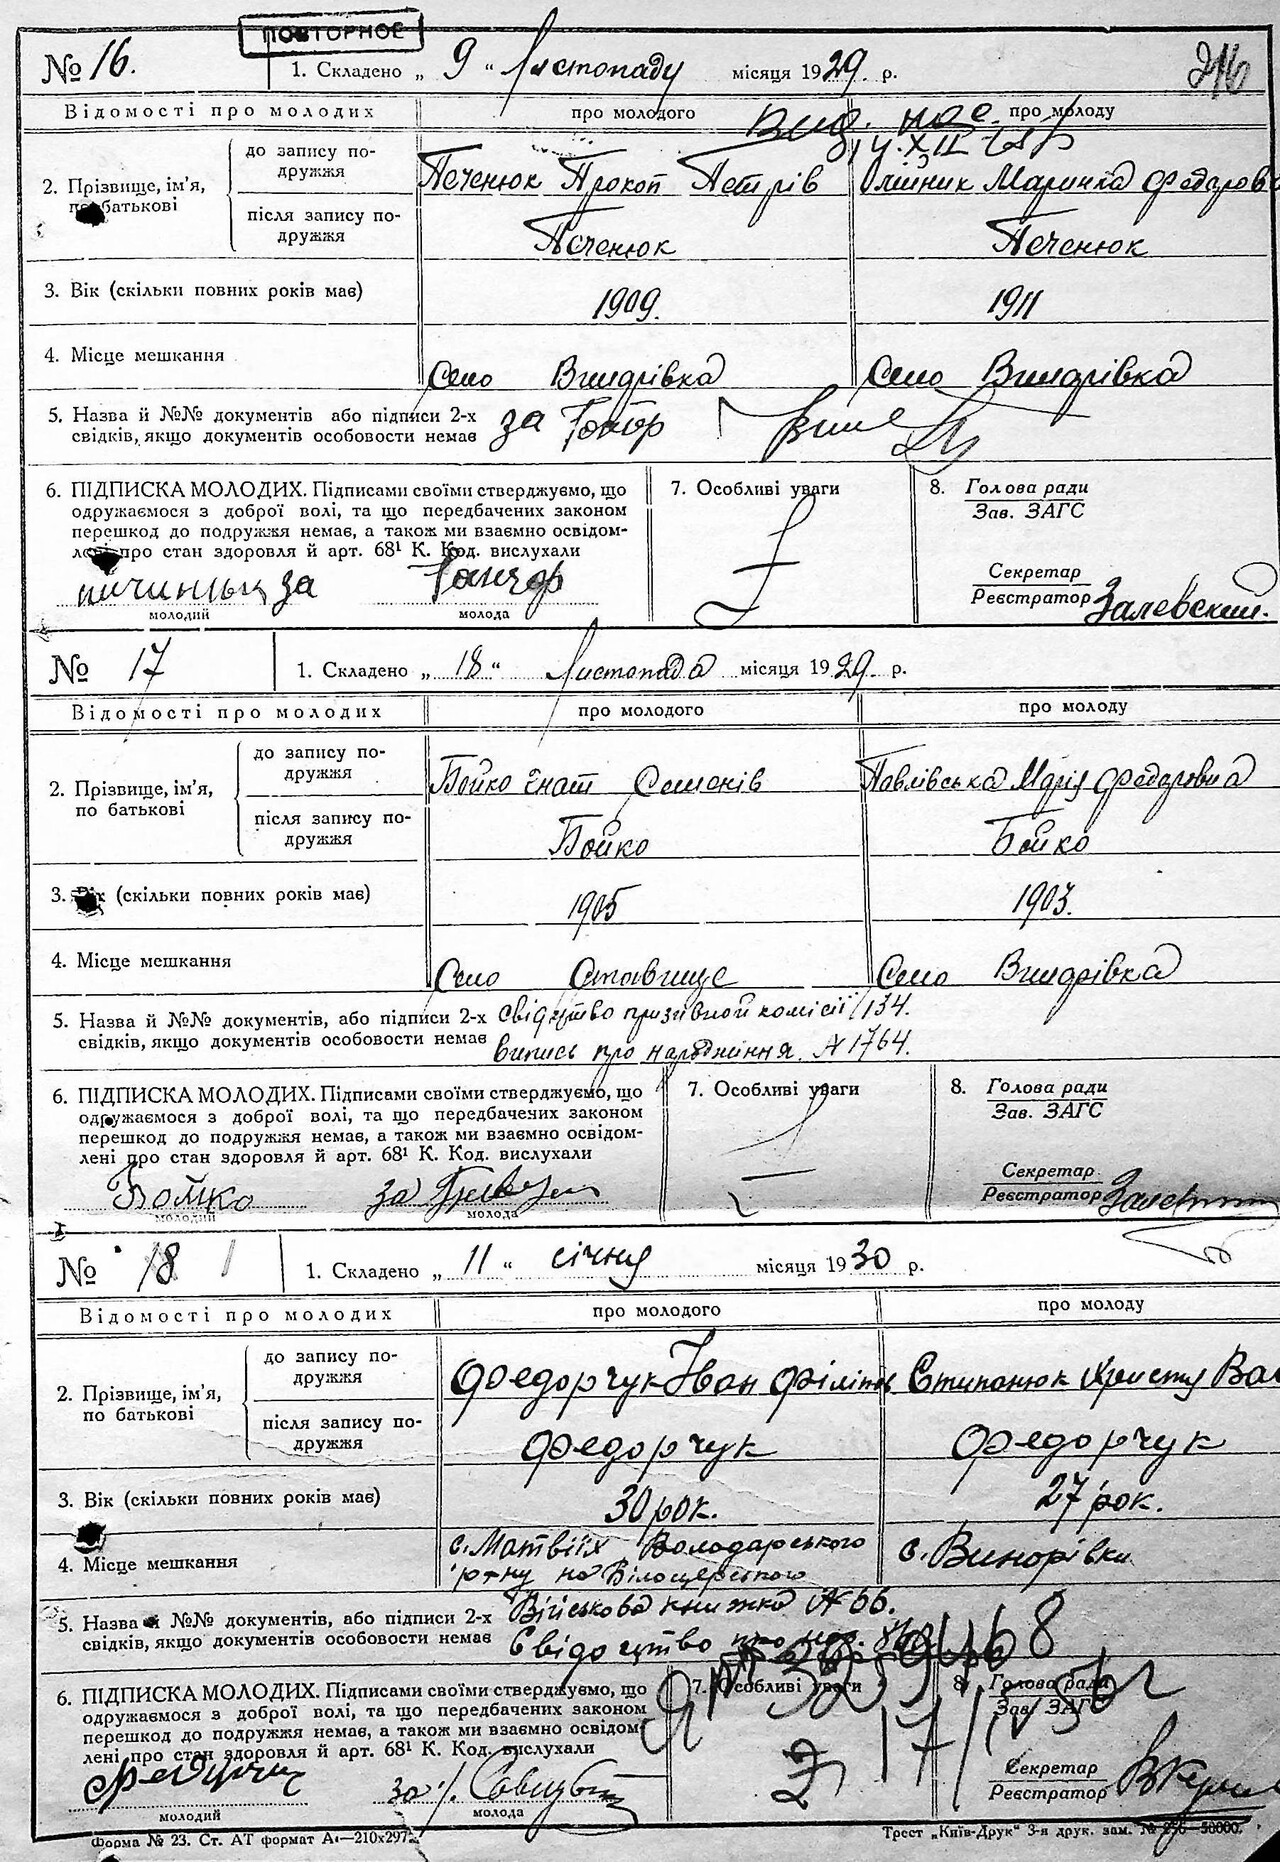 ПОВТОРНОЕ
№ 16. 1. Складено „ 9 “ Листопаду місяця 1929 р. 216
Відомості про молодих про молодого про молоду
Вид.
2. Прізвище, ім'я, по батькові
до запису подружжя Печенюк Прокоп Петрів Олійник Маринка Федоров
після запису подружжя Печенюк Печенюк
3. Вік (скільки повних років має) 1909. 1911
4. Місце мешкання Село Село
5. Назва й №№ документів або підписи 2-х за
свідків, якщо документів особовости немає
6. ПІДПИСКА МОЛОДИХ. Підписами своїми стверджуємо, що
одружаємося з доброї волі, та що передбачених законом
перешкод до подружжя немає, а також ми взаємно освідом-
лені про стан здоровля й арт. 68¹ К. Код. вислухали
за
молодий молода
7. Особливі уваги
8. Голова ради
Зав. ЗАГС
Секретар
Реєстратор Залевский.
№ 17 1. Складено „ 18 “ Листопада місяця 1929 р.
Відомості про молодих про молодого про молоду
2. Прізвище, ім'я,
по батькові
до запису по-
дружжя Бойко Гнат Семенів Павлівська Марія Федоровна
після запису по-
дружжя Бойко Бойко
3. Вік (скільки повних років має) 1905 1903.
4. Місце мешкання Село Ставище Село
5. Назва й №№ документів, або підписи 2-х свідуцтво призивной комісії /134.
свідків, якщо документів особовости немає випись про народження № 1764.
6. ПІДПИСКА МОЛОДИХ. Підписами своїми стверджуємо, що
одружаємося з доброї волі, та що передбачених законом
перешкод до подружжя немає, а також ми взаємно освідом-
лені про стан здоровля й арт. 68¹ К. Код. вислухали
Бойко за
молодий молода
7. Особливі уваги
8. Голова ради
Зав. ЗАГС
Секретар
Реєстратор
№ 18 1 1. Складено „ 11 “ січня місяця 1930 р.
Відомості про молодих про молодого про молоду
2. Прізвище, ім'я,
по батькові
до запису по-
дружжя Федорчук Іван Філіпів Стипанюк Христу Вас
після запису по-
дружжя Федорчук Федорчук
3. Вік (скільки повних років має) 30 рок. 27 рок.
4. Місце мешкання с. Матвіїх Володарського
р-ну на Білоцерківського с. Винорівки
5. Назва й №№ документів, або підписи 2-х Військова книжка № 66.
свідків, якщо документів особовости немає Свідоцтво про нар.
6. ПІДПИСКА МОЛОДИХ. Підписами своїми стверджуємо, що
одружаємося з доброї волі, та що передбачених законом
перешкод до подружжя немає, а також ми взаємно освідом-
лені про стан здоровля й арт. 68¹ К. Код. вислухали
за
молодий молода
7. Особливі уваги
8. Голова ради
Зав. ЗАГС
Секретар
Реєстратор
Форма № 23. Ст. АТ формат А₄—210x297. Трест „Київ-Друк“ 3-я друк. зам. № 256—50000.